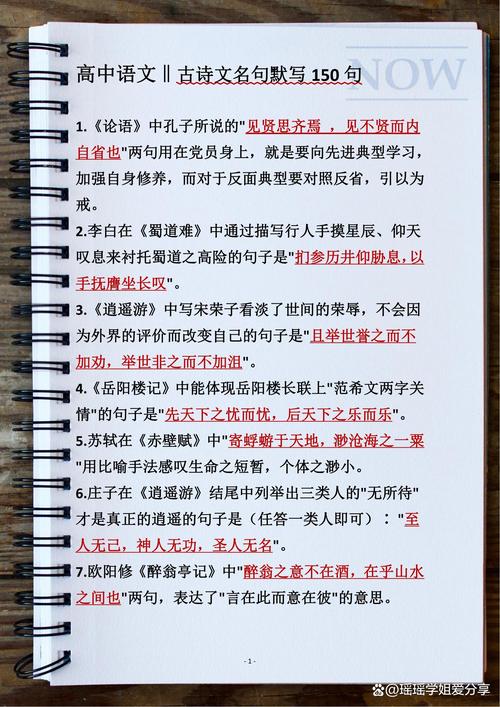 NOW
高中语文‖古诗文名句默写150句
1.《论语》中孔子所说的"见贤思齐焉 ，见不贤而内
自省也"两句用在党员身上，就是要向先进典型学习，
加强自身修养，而对于反面典型要对照反省，引以为
戒。
2.李白在《蜀道难》中通过描写行人手摸星辰、仰天
叹息来衬托蜀道之高险的句子是"扪参历井仰胁息，以
手抚膺坐长叹"。
3.《逍遥游》中写宋荣子看淡了世间的荣辱，不会因
为外界的评价而改变自己的句子是"且举世誉之而不
加劝，举世非之而不加沮"。
4.《岳阳楼记》中能体现岳阳楼长联上"范希文两字关
情"的句子是"先天下之忧而忧，后天下之乐而乐"。
5.苏轼在《赤壁赋》中"寄蜉蝣于天地，渺沧海之一粟
"用比喻手法感叹生命之短暂，个体之渺小。
6.庄子在《逍遥游》结尾中列举出三类人的"无所待"
才是真正的逍遥的句子是（任答一类人即可）："至
人无己，神人无功，圣人无名"。
7.欧阳修《醉翁亭记》中"醉翁之意不在酒，在乎山水
之间也"两句，表达了"言在此而意在彼"的意思。
- 1 -
@瑶瑶学姐爱分享